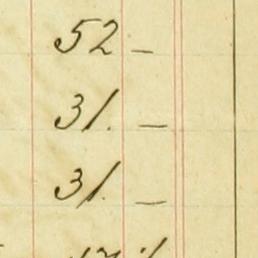 52 –
31. –
31. –